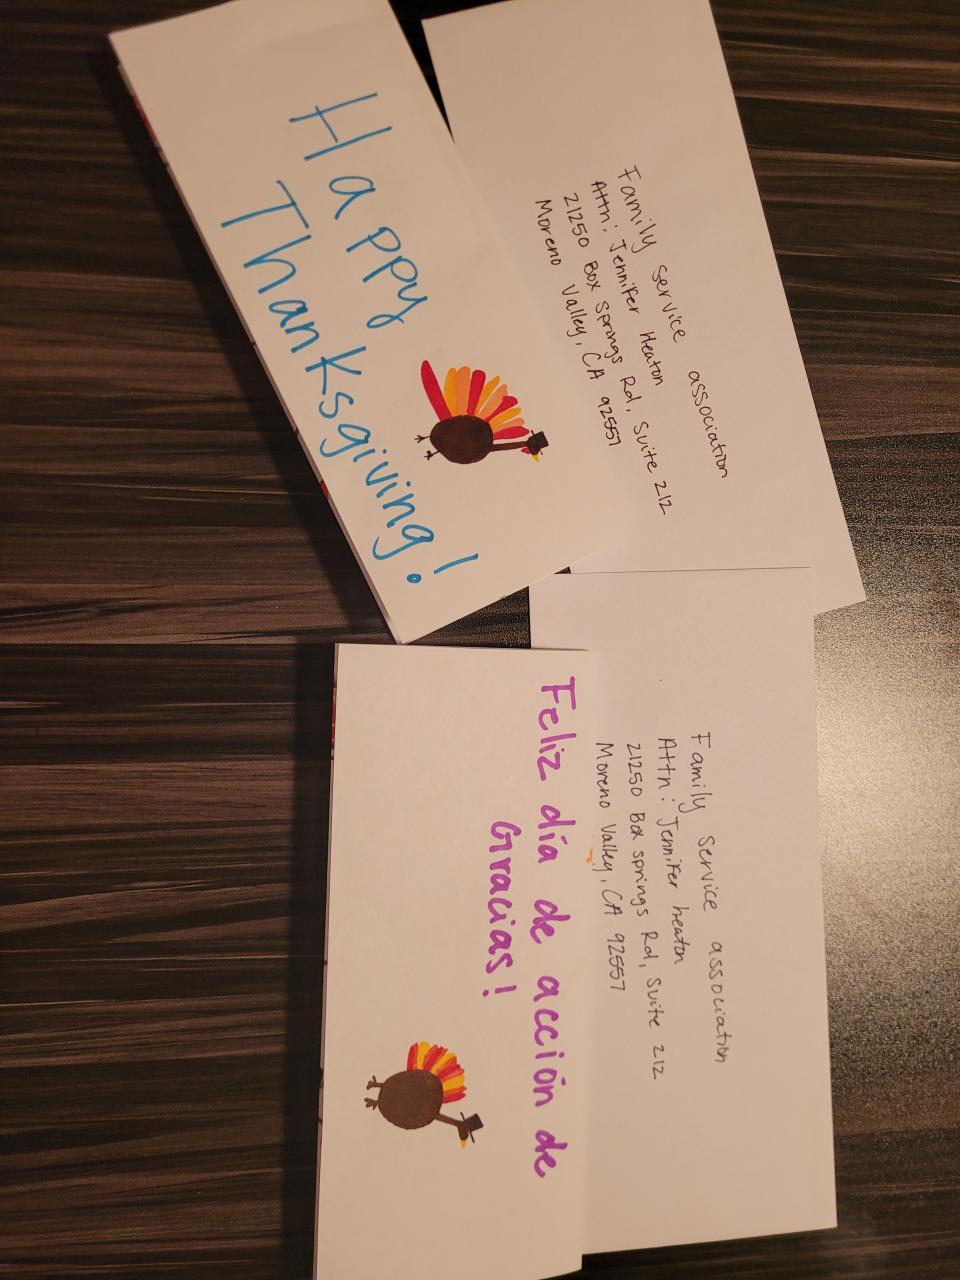 Happy
Thanksgiving!
Family Service association
Attn: Jennifer Heaton
21250 Box Springs Rd, Suite 212
Moreno Valley, CA 92557
Feliz día de acción de
Gracias!
Family Service association
Attn: Jennifer heaton
21250 Box springs Rd, Suite 212
Moreno Valley, CA 92557